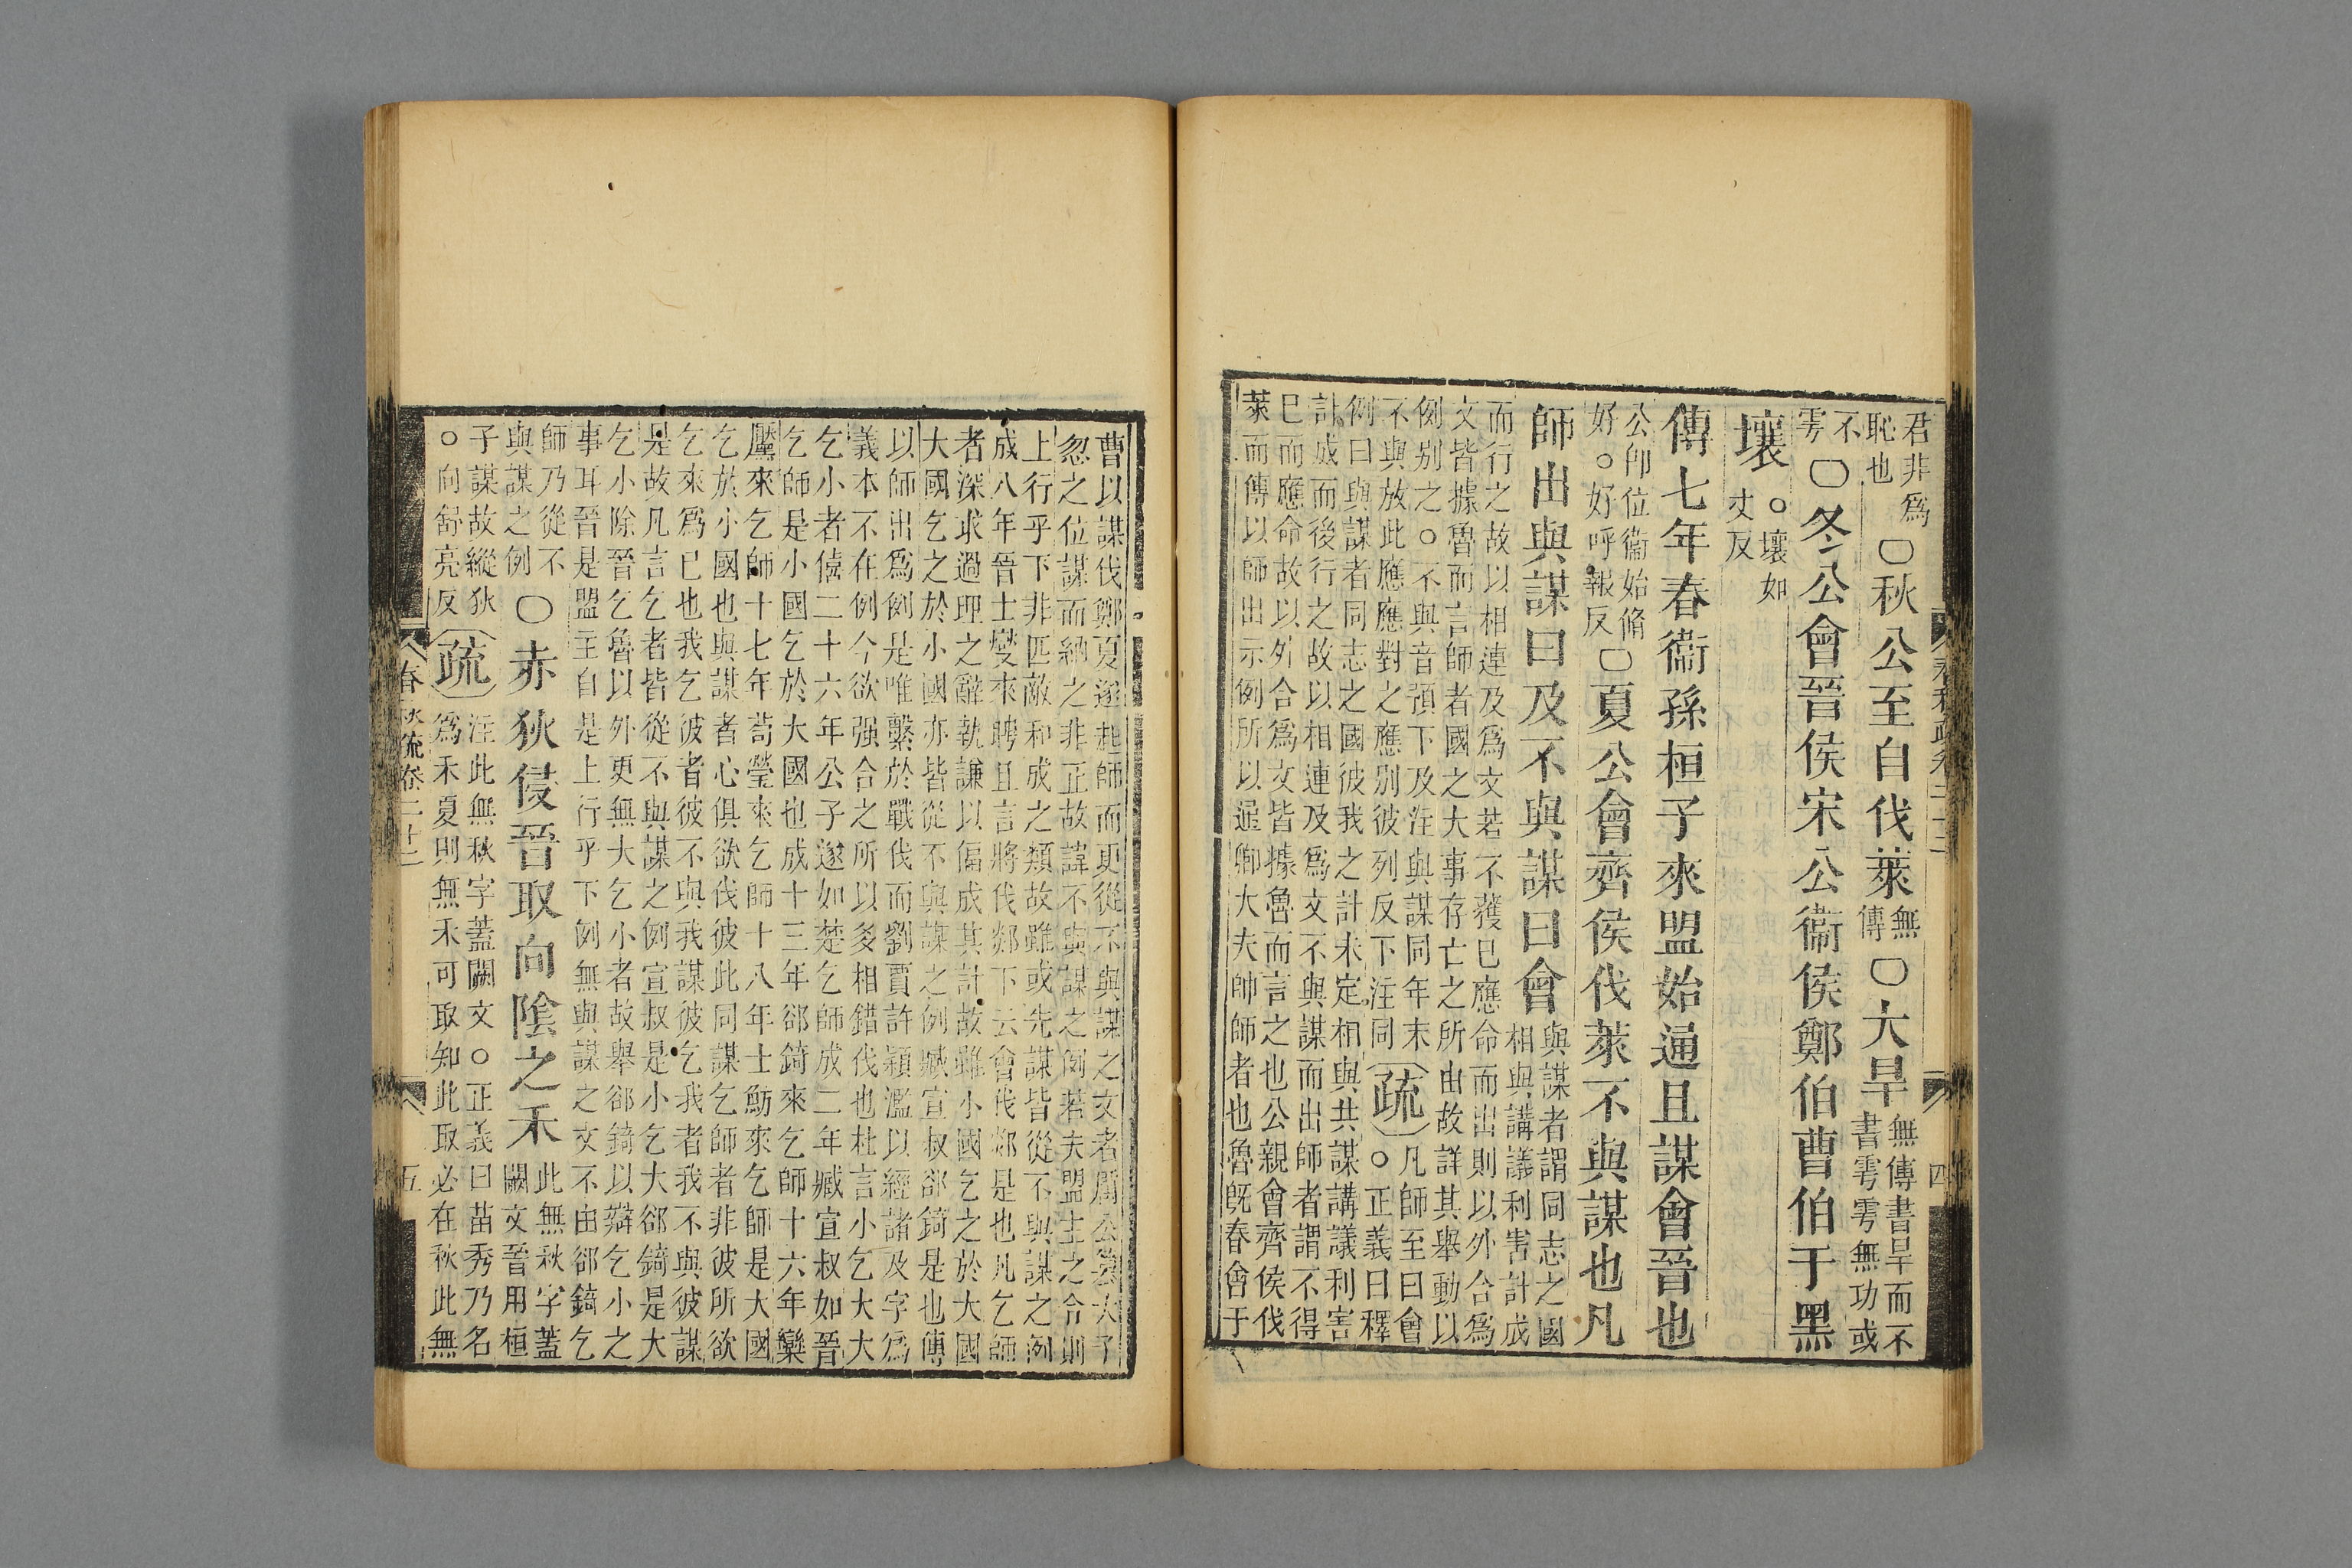 君非爲
恥也
〇秋公至自伐萊
無
傳
〇大旱
無傳書旱而不
書雩雩無功或
不
雩
〇冬公會晉侯宋公衞侯鄭伯曹伯于黑
壤
〇壤如
丈反
傳七年春衞孫桓子來盟始通且謀會晉也
公卽位衞始脩
好〇好呼報反
〇夏公會齊侯伐萊不與謀也凡
師出與謀曰及不與謀曰會
與謀者謂同志之國
相與講議利害計成
而行之故以相連及爲文若不獲已應命而出則以外合爲
文皆據魯而言師者國之大事存亡之所由故詳其舉動以
例别之〇不與音預下及注與謀同年末
不與放此應應對之應别彼列反下注同
疏
凡師至曰會
〇正義曰釋
例曰與謀者同志之國彼我之計未定相與共謀講議利害
計成而後行之故以相連及爲文不與謀而出師者謂不得
已而應命故以外合爲文皆據魯而言之也公親會齊侯伐
萊而傳以師出示例所以通卿大夫帥師者也魯旣春會于
春秋疏卷二十二
四
曹以謀伐鄭夏遂起師而更從不與謀之文者厲公簒大子
忽之位謀而納之非正故諱不與謀之例若夫盟主之令則
上行乎下非匹敵和成之類故雖或先謀皆從不與謀之例
成八年晉士燮來聘且言將伐郯下云會伐郯是也凡乞師
者深求過理之辭執謙以偪成其計故雖小國乞之於大國
大國乞之於小國亦皆從不與謀之例臧宣叔郤錡是也傳
以師出爲例是唯繫於戰伐而劉賈許穎濫以經諸及字爲
義本不在例今欲强合之所以多相錯伐也杜言小乞大大
乞小者僖二十六年公子遂如楚乞師成二年臧宣叔如晉
乞師是小國乞於大國也成十三年郤錡來乞師十六年欒
黶來乞師十七年荀罃來乞師十八年士魴來乞師是大國
乞於小國也與謀者心俱欲伐彼此同謀乞師者非彼所欲
乞來爲已也我乞彼者彼不與我謀彼乞我者我不與彼謀
是故凡言乞者皆從不與謀之例宣叔是小乞大郤錡是大
乞小除晉乞魯以外更無大乞小者故舉郤錡以辯乞小之
事耳晉是盟主自是上行乎下例無與謀之文不由郤錡乞
師乃從不
與謀之例
〇赤狄侵晉取向陰之禾
此無秋字蓋
闕文晉用桓
子謀故縱狄
〇向舒亮反
疏
注此無秋字蓋闕文〇正義曰苗秀乃名
爲禾夏則無禾可取知此取必在秋此無
春秋疏卷二十二
五